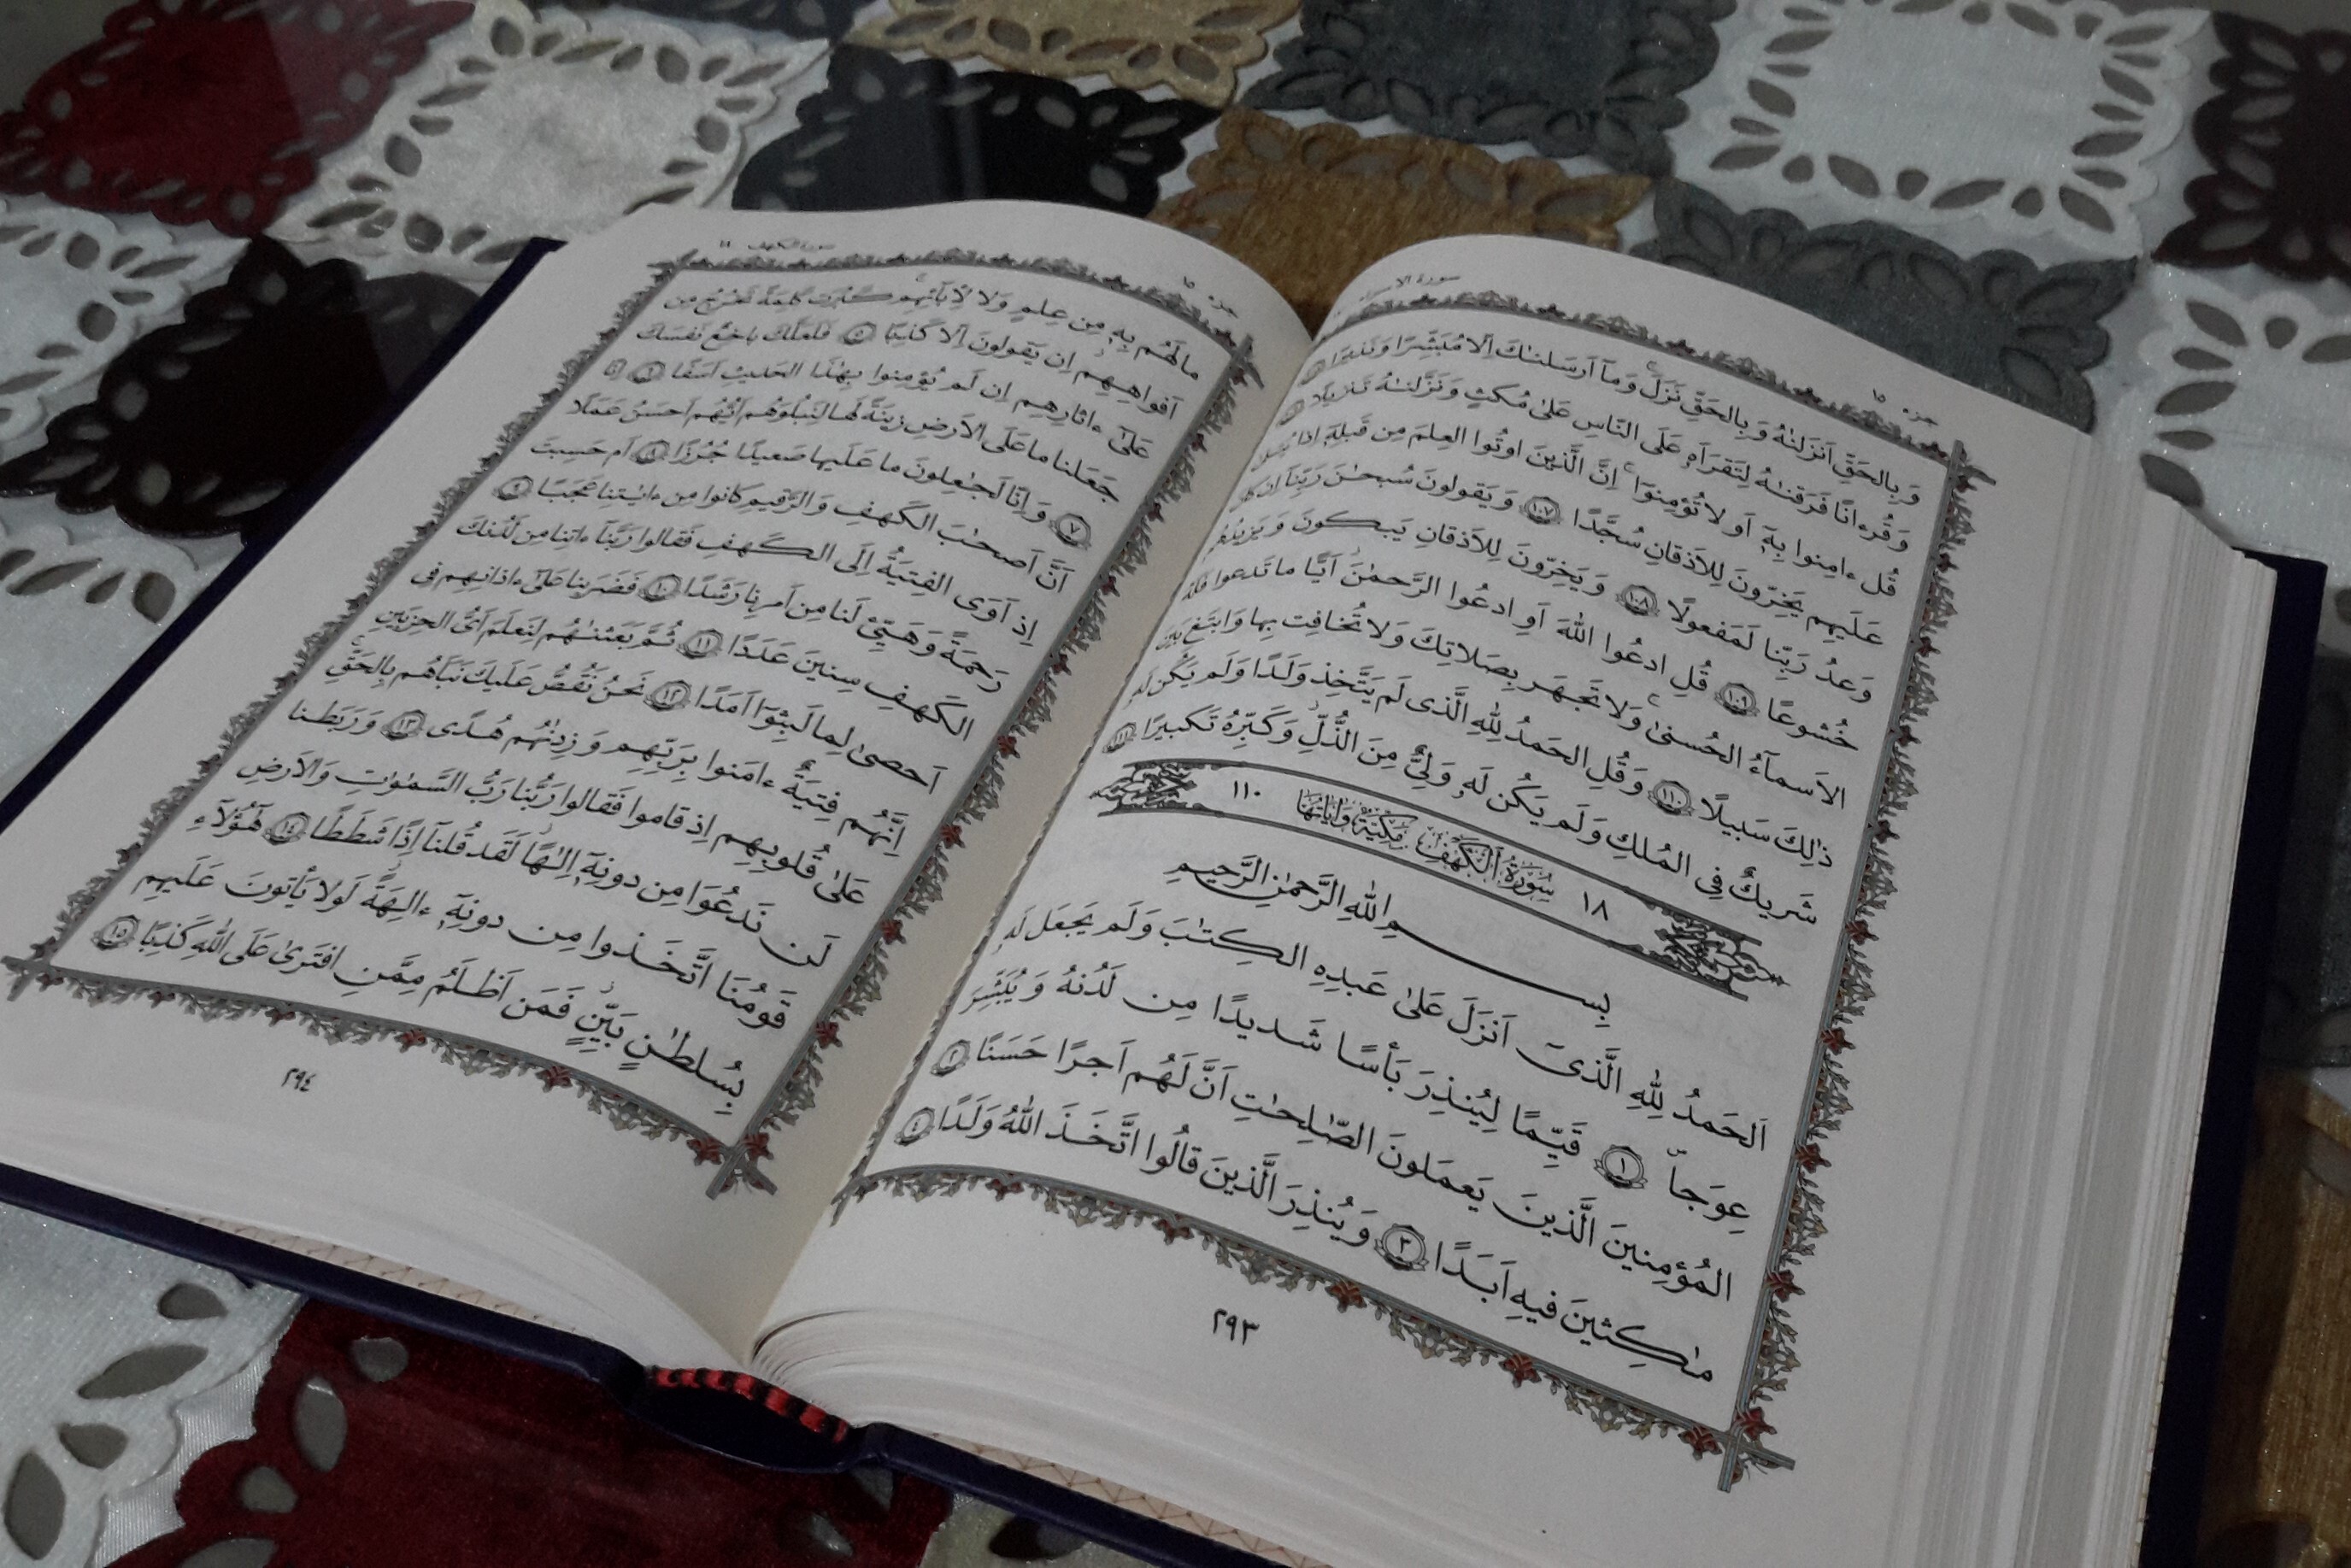 جزء ١٥
سورة الاسراء
وَبِالحَقِّ اَنزَلنٰهُ وَبِالحَقِّ نَزَلَ وَمآ اَرسَلنٰكَ اِلّا مُبَشِّرًا وَنَذيرًا
وَقُرءانًا فَرَقنٰهُ لِتَقرَاَهُ عَلَى النّاسِ عَلىٰ مُكثٍ وَنَزَّلنٰهُ تَنزيلًا
قُل ءامِنوا بِهِٓ اَو لا تُؤمِنوٓا اِنَّ الَّذينَ اوتُوا العِلمَ مِن قَبلِهِٓ اِذا يُتلىٰ
عَلَيهِم يَخِرّونَ لِلاَذقانِ سُجَّدًا ١٠٧ وَيَقولونَ سُبحٰنَ رَبِّنآ اِن كانَ
وَعدُ رَبِّنا لَمَفعولًا ١٠٨ وَيَخِرّونَ لِلاَذقانِ يَبكونَ وَيَزيدُهُم
خُشوعًا ١٠٩ قُلِ ادعُوا اللّٰهَ اَوِ ادعُوا الرَّحمٰنَ اَيًّا ما تَدعوا فَلَهُ
الاَسمآءُ الحُسنىٰ وَلا تَجهَر بِصَلاتِكَ وَلا تُخافِت بِها وَابتَغِ بَينَ
ذٰلِكَ سَبيلًا ١١٠ وَقُلِ الحَمدُ لِلّٰهِ الَّذى لَم يَتَّخِذ وَلَدًا وَلَم يَكُن لَهُ
شَريكٌ فِى المُلكِ وَلَم يَكُن لَهُ وَلِىٌّ مِنَ الذُّلِّ وَكَبِّرهُ تَكبيرًا ١١١
١٨ سُورَةُ الكَهْفِ مَكِيَّةٌ وَاٰيَاتُهَا ١١٠
بِسمِ اللّٰهِ الرَّحمٰنِ الرَّحيمِ
اَلحَمدُ لِلّٰهِ الَّذىٓ اَنزَلَ عَلىٰ عَبدِهِ الكِتٰبَ وَلَم يَجعَل لَهُ
عِوَجا ١ قَيِّمًا لِيُنذِرَ بَأسًا شَديدًا مِن لَدُنهُ وَيُبَشِّرَ
المُؤمِنينَ الَّذينَ يَعمَلونَ الصّٰلِحٰتِ اَنَّ لَهُم اَجرًا حَسَنًا ٢
مٰكِثينَ فيهِ اَبَدًا ٣ وَيُنذِرَ الَّذينَ قالُوا اتَّخَذَ اللّٰهُ وَلَدًا ٤
٢٩٣
جزء ١٥
سورة الكهف ١٨
ما لَهُم بِهِ مِن عِلمٍ وَلا لِاٰبآئِهِم كَبُرَت كَلِمَةً تَخرُجُ مِن
اَفواهِهِم اِن يَقولونَ اِلّا كَذِبًا ٥ فَلَعَلَّكَ باخِعٌ نَفسَكَ
عَلىٰٓ ءاثارِهِم اِن لَم يُؤمِنوا بِهٰذَا الحَديثِ اَسَفًا ٦ اِنّا
جَعَلنا ما عَلَى الاَرضِ زينَةً لَها لِنَبلُوَهُم اَيُّهُم اَحسَنُ عَمَلًا
٧ وَاِنّا لَجٰعِلونَ ما عَلَيها صَعيدًا جُرُزًا ٨ اَم حَسِبتَ
اَنَّ اَصحٰبَ الكَهفِ وَالرَّقيمِ كانوا مِن ءايٰتِنا عَجَبًا ٩
اِذ اَوَى الفِتيَةُ اِلَى الكَهفِ فَقالوا رَبَّنآ ءاتِنا مِن لَدُنكَ
رَحمَةً وَهَيِّئ لَنا مِن اَمرِنا رَشَدًا ١٠ فَضَرَبنا عَلىٰٓ ءاذانِهِم فِى
الكَهفِ سِنينَ عَدَدًا ١١ ثُمَّ بَعَثنٰهُم لِنَعلَمَ اَىُّ الحِزبَينِ
اَحصىٰ لِما لَبِثوٓا اَمَدًا ١٢ نَحنُ نَقُصُّ عَلَيكَ نَبَاَهُم بِالحَقِّ
اِنَّهُم فِتيَةٌ ءامَنوا بِرَبِّهِم وَزِدنٰهُم هُدًى ١٣ وَرَبَطنا
عَلىٰ قُلوبِهِم اِذ قاموا فَقالوا رَبُّنا رَبُّ السَّمٰوٰتِ وَالاَرضِ
لَن نَدعُوَا مِن دونِهِٓ اِلٰهًا لَقَد قُلنآ اِذًا شَطَطًا ١٤ هٰٓؤُلآءِ
قَومُنَا اتَّخَذوا مِن دونِهِٓ ءالِهَةً لَولا يَأتونَ عَلَيهِم
بِسُلطٰنٍ بَيِّنٍ فَمَن اَظلَمُ مِمَّنِ افتَرىٰ عَلَى اللّٰهِ كَذِبًا ١٥
٢٩٤